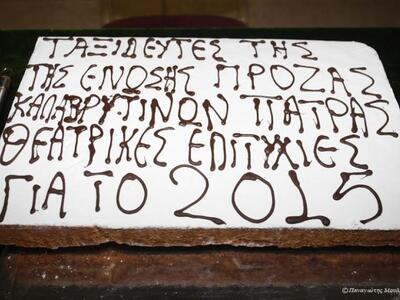 ΤΑΞΙΔΕΥΤΕΣ ΤΗΣ
ΤΗΣ ΕΝΩΣΗΣ ΠΡΟΖΑΣ
ΚΑΛΑΒΡΥΤΙΝΩΝ ΠΑΤΡΑΣ
ΘΕΑΤΡΙΚΕΣ ΕΠΙΤΥΧΙΕΣ
ΓΙΑ ΤΟ 2015
© Παναγιώτης